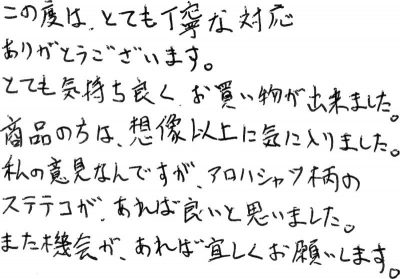 この度は、とても丁寧な対応
ありがとうございます。
とても気持ち良く、お買い物が出来ました。
商品のちは、想像以上に気に入りました。
私の意見なんですが、アロハシャツ柄の
ステテコが、あれば良いと思いました。
また機会が、あれば宜しくお願いします。